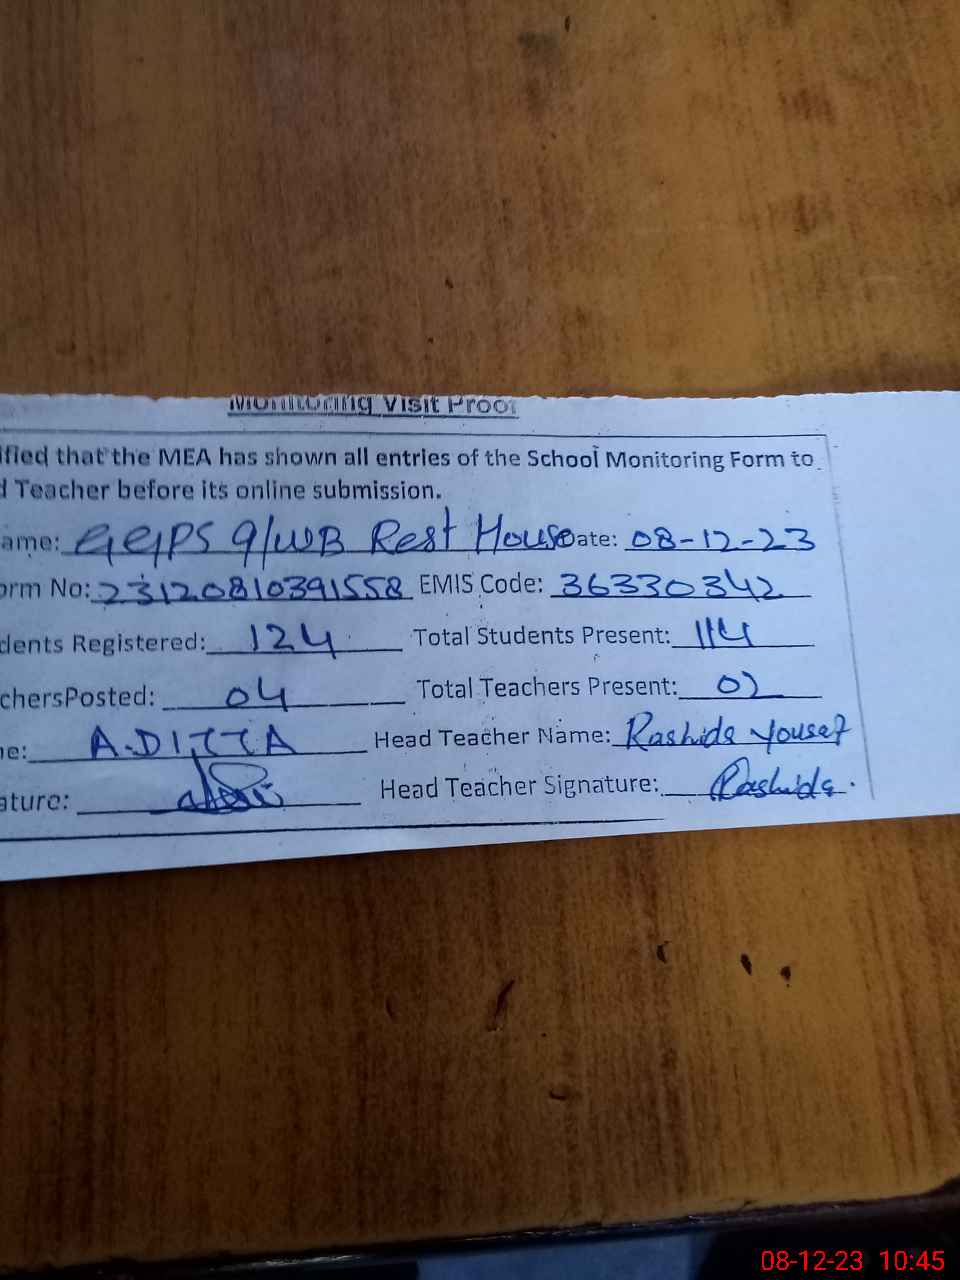 Monitoring Visit Proof
ified that the MEA has shown all entries of the School Monitoring Form to
d Teacher before its online submission.
ame: GGPS 9/WB Rest House Date: 08-12-23
orm No: 23120810391558 EMIS Code: 36330342
dents Registered: 124 Total Students Present: 114
chersPosted: 04 Total Teachers Present: 02
ne: A.DITTA Head Teacher Name: Rashida Yousaf
ature: Head Teacher Signature: Rashida.
08-12-23 10:45